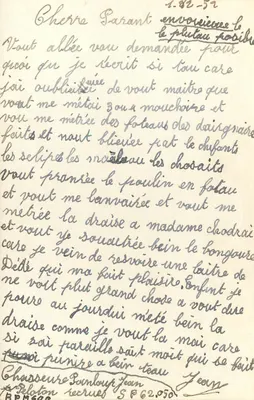 1.82-52
Cherre Parant envoiecivec le
le plutau posible
Vout allée vou demandée pour
quoi qu je recrit si tau care
j'ai oubliciee de vout maitre que
vout me métiez 2 ou 4 mouchoire et
vou me mitrée des foteaus des dairgnaire
faits et nout blicier pat le chefonts
les sclipes les maleau les chosaits
vout pranrée le poulin en fotau
et vout me lanvoirée et vout me
metrée la draise a madame chodrai
et vout ye souaitrée bein le bongoure
care je vein de resvoire une laitre de
Dédé qui ma fait plaisire, Enfent je
ne voit plut grand chose a vout dire
poure au jourdui mieté bein la
draise comme je vout la mai care
si sai paraille sait moit qui se fait
punire a bein teau Jean
Chasseure Jean
Peloton recrues S P 62.950